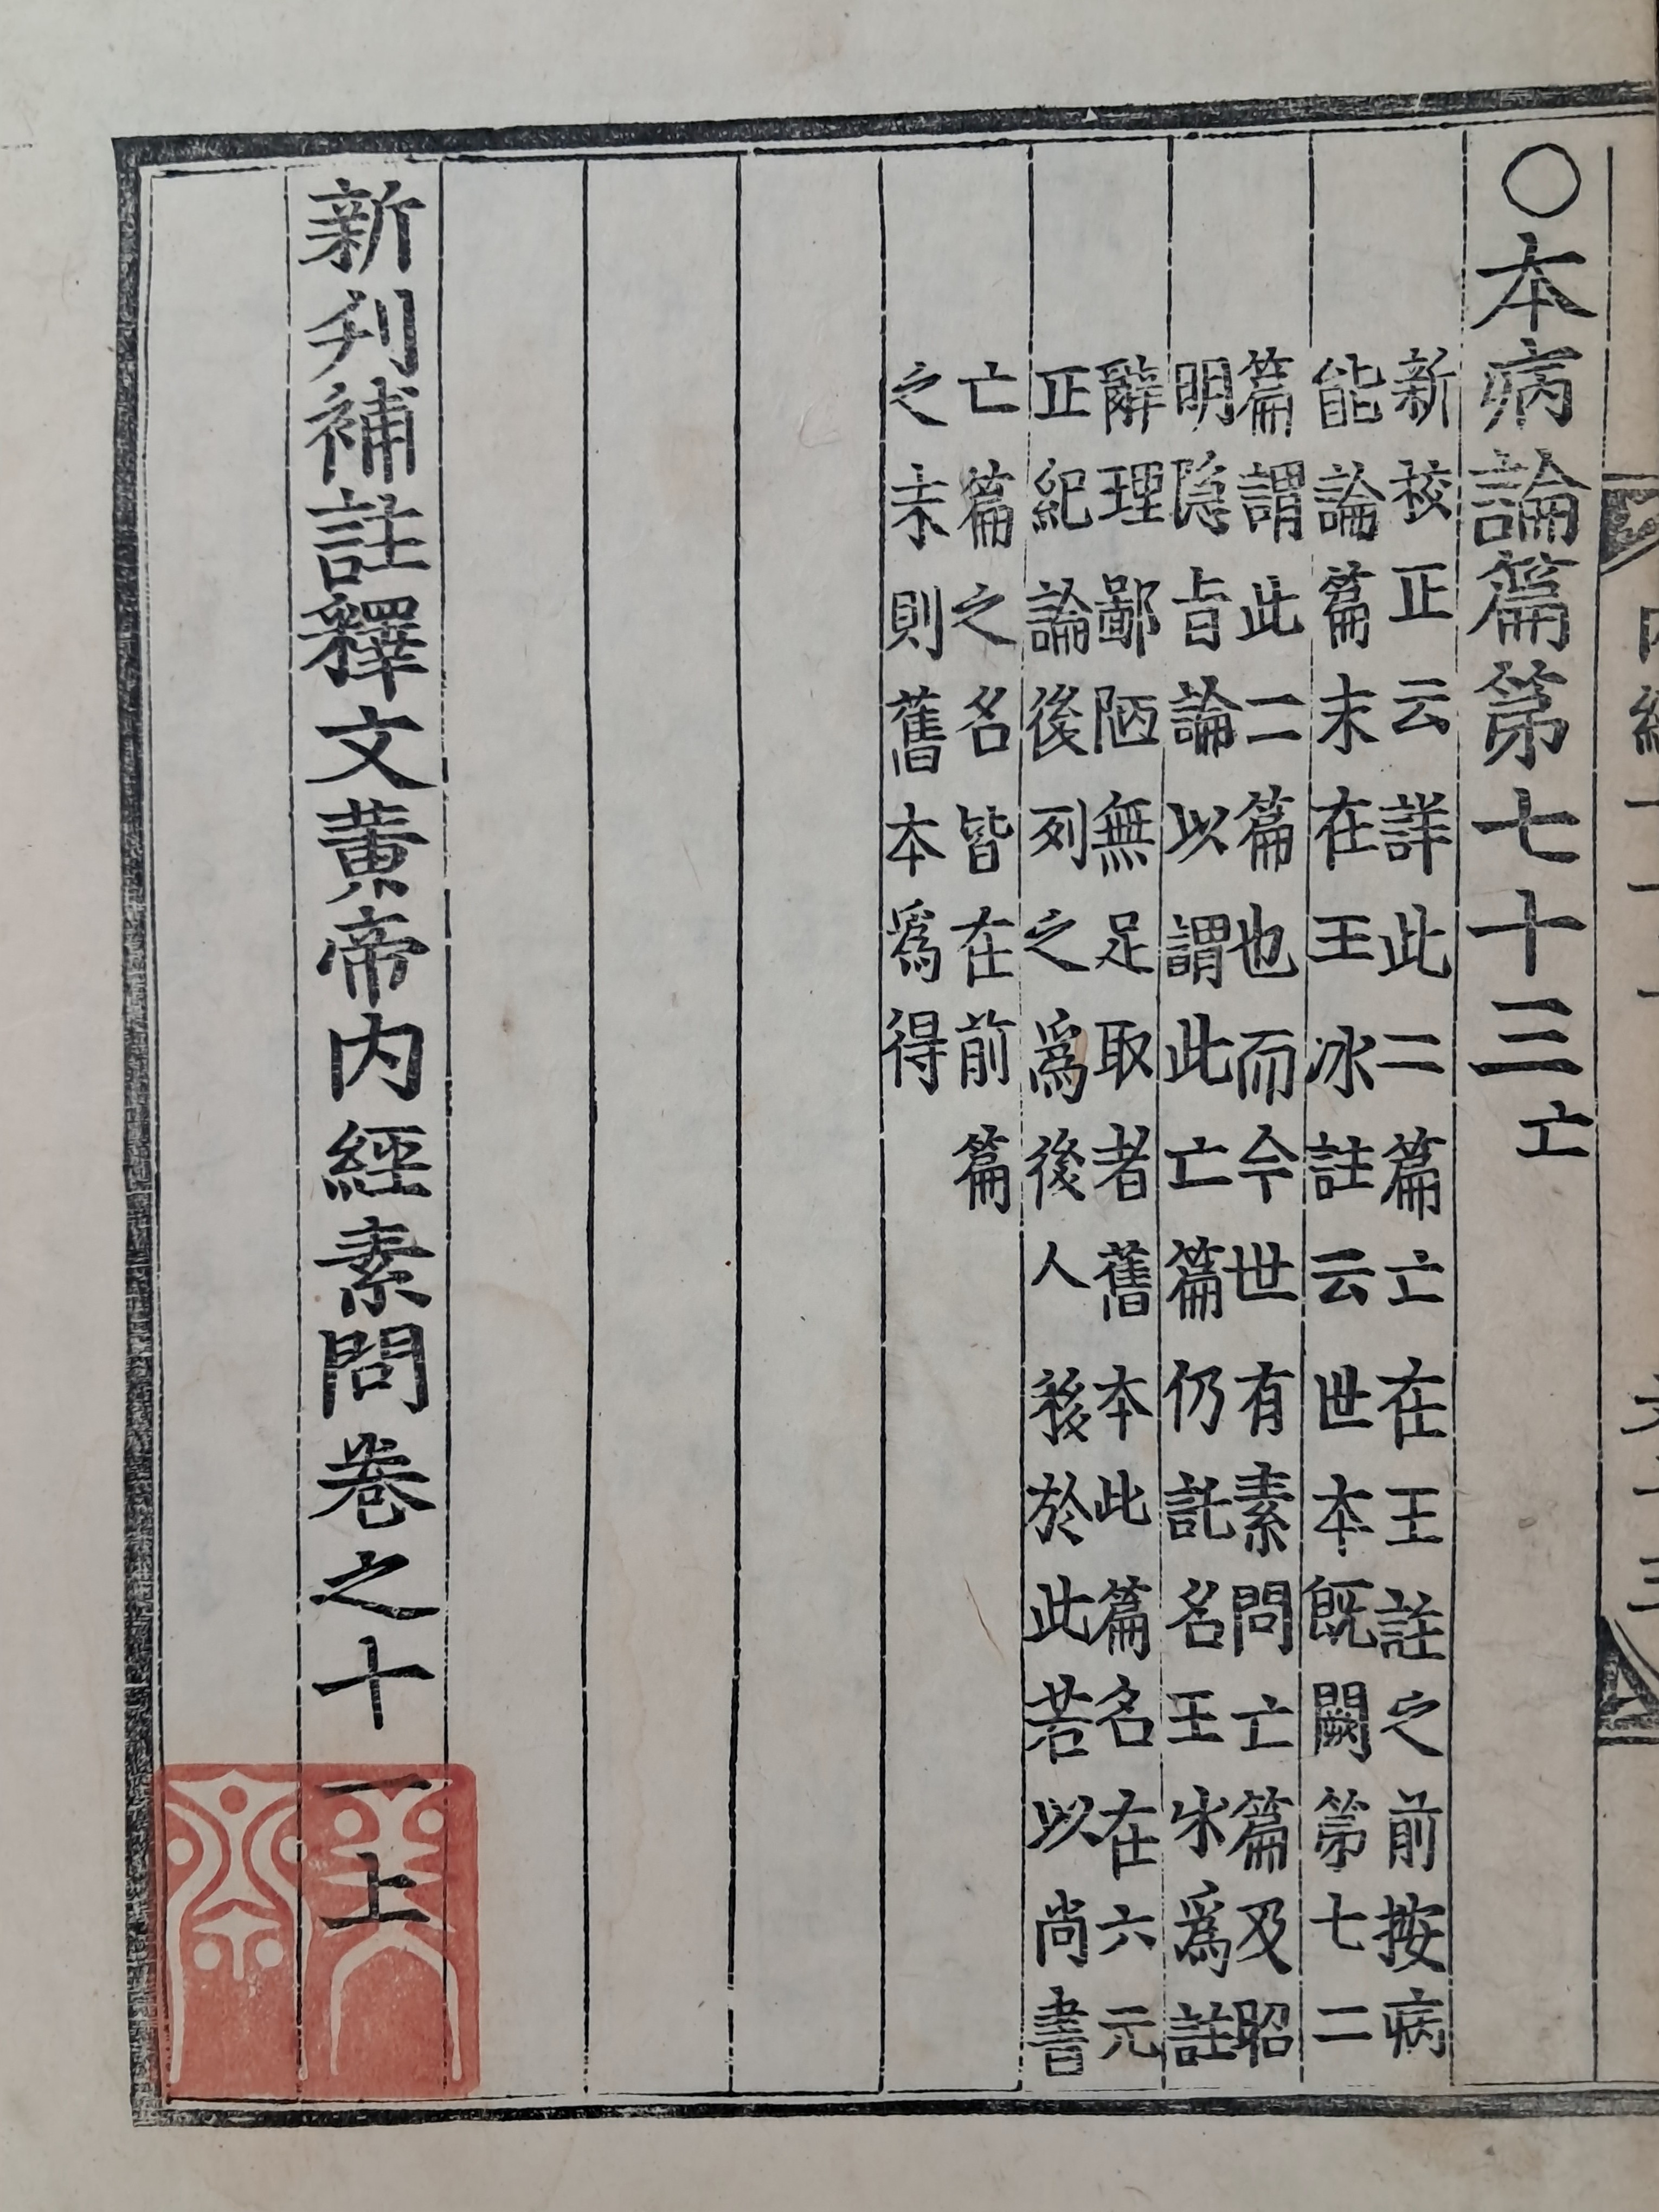 〇本病論篇第七十三亡
新校正云詳此二篇亡在王註之前按病
能論篇末在王冰註云世本既闕第七二
篇謂此二篇也而今世有素問亡篇及昭
明隐旨論以謂此亡篇仍託名王氷爲註
辭理鄙陋無足取者舊本此篇名在六元
正紀論後列之爲後人移於此若以尚書
亡篇之名皆在前篇
之末則舊本爲得
新刋補註釋文黄帝内經素問卷之十一上